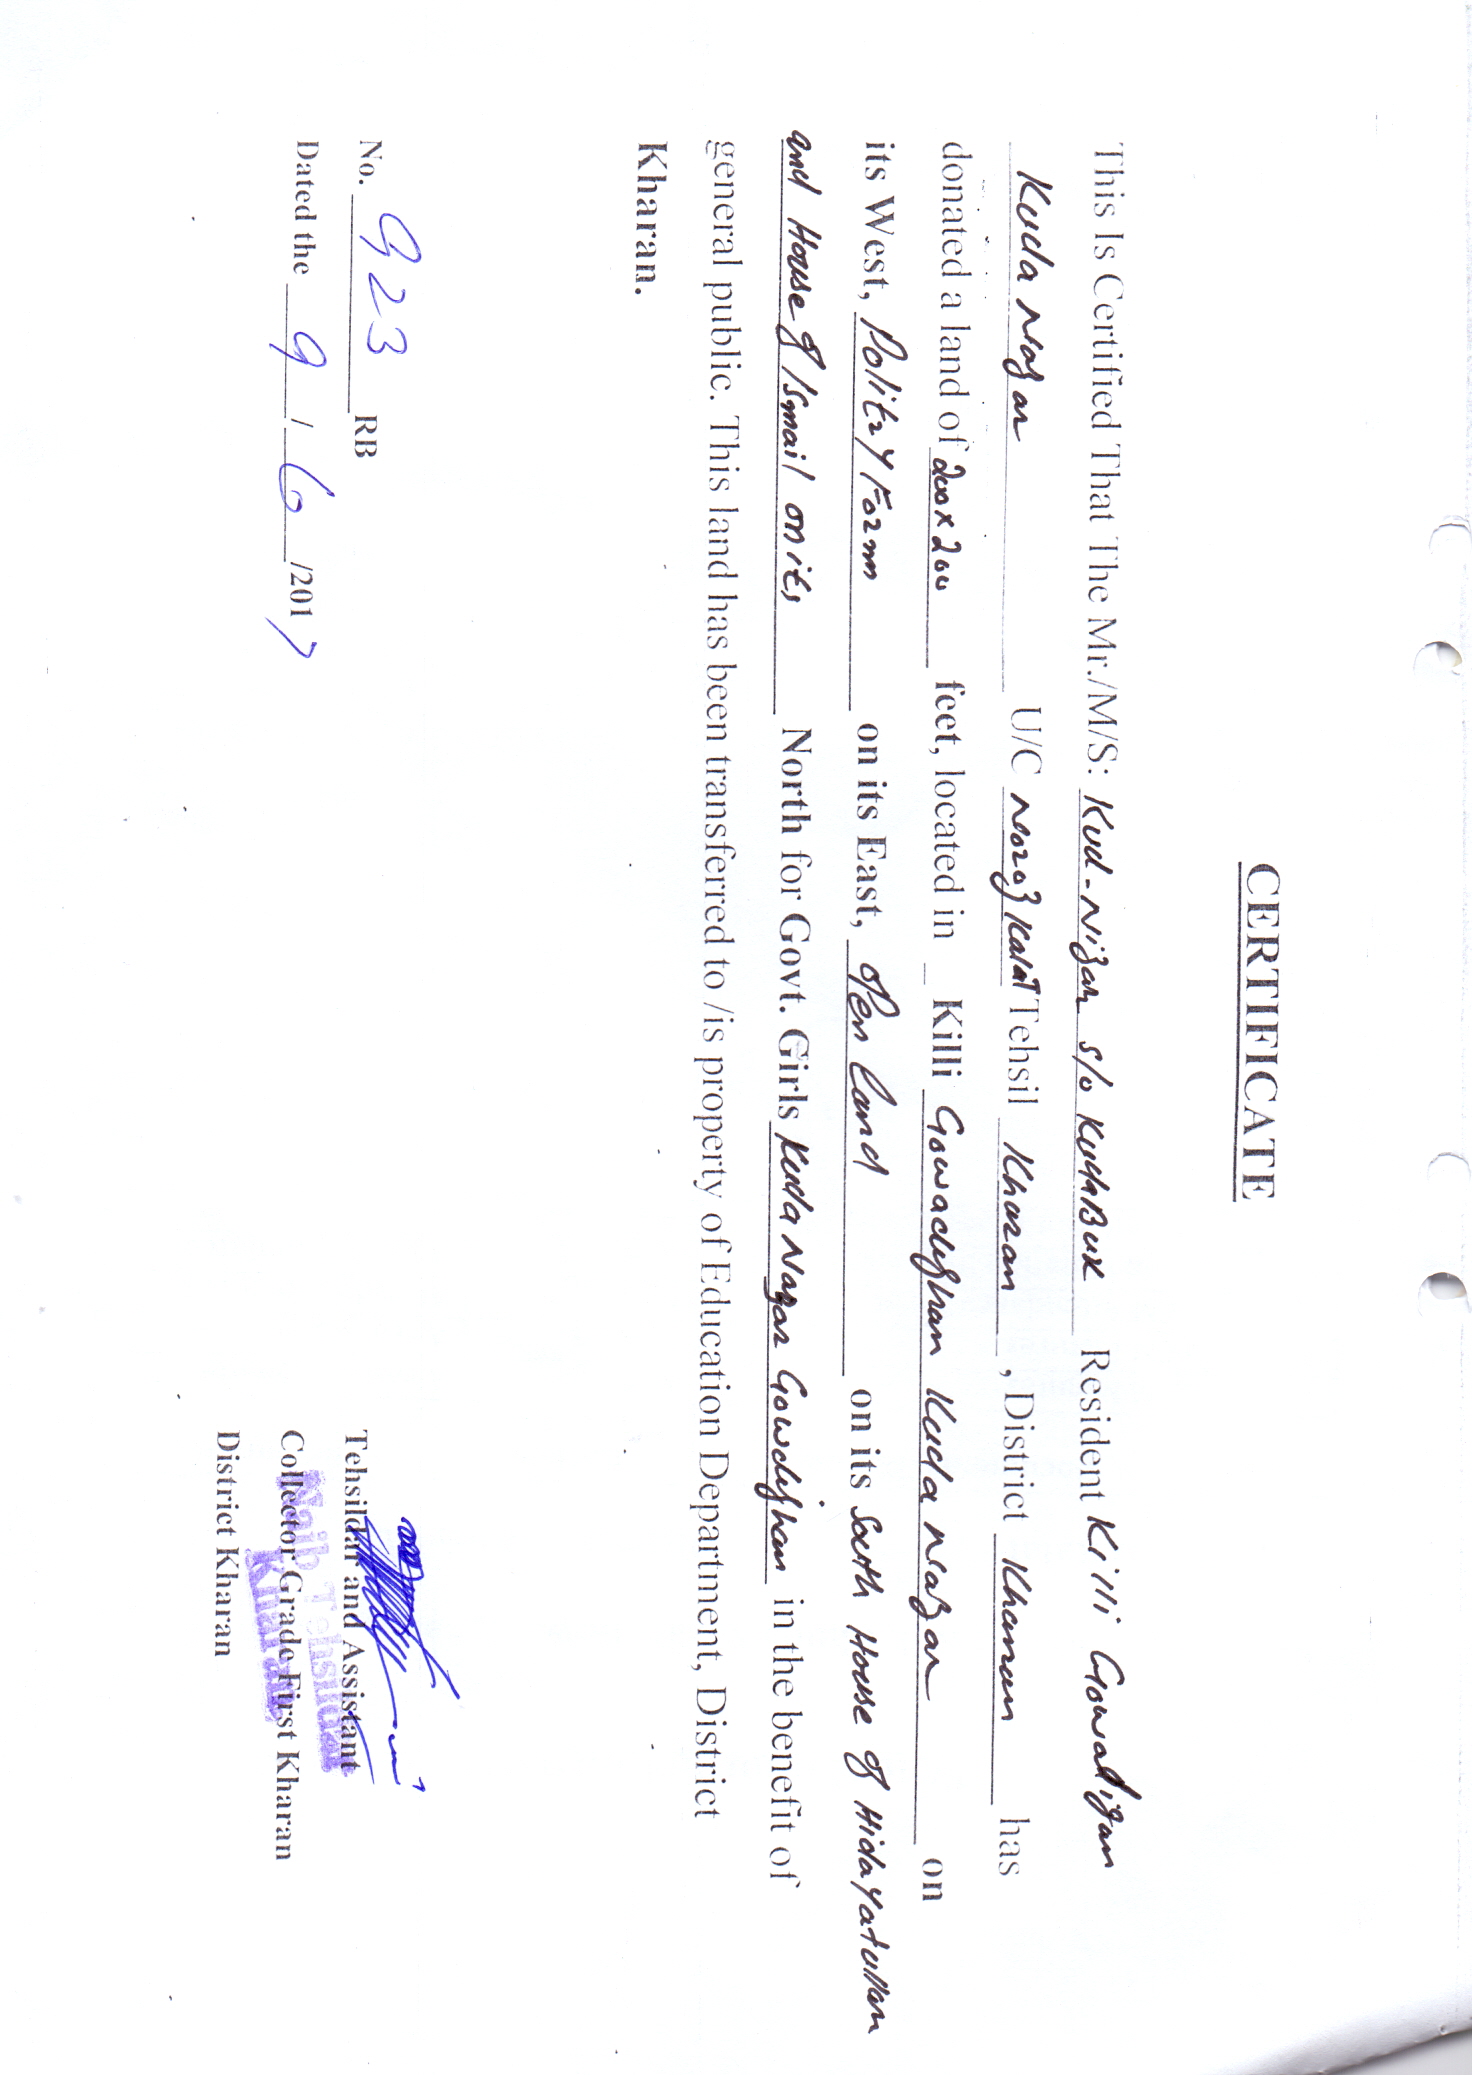 CERTIFICATE
This Is Certified That The Mr./M/S: Kud-Nizar s/o KudaBux Resident Killi Gowadigan
Kuda Nazar U/C Noroz Kalat Tehsil Kharan, District Kharan has
donated a land of 200x200 feet, located in Killi Gowadighan Kuda Nazar on
its West, Politry Form on its East, open land on its South House of Hidayatullah
and House of Ismail on its North for Govt. Girls Kuda Nazar Gowdighan in the benefit of
general public. This land has been transferred to /is property of Education Department, District
Kharan.
No. 923 RB
Dated the 9/6/2017
Tehsildar and Assistant
Collector Grade First Kharan
District Kharan
Naib Tehsildar
Kharan